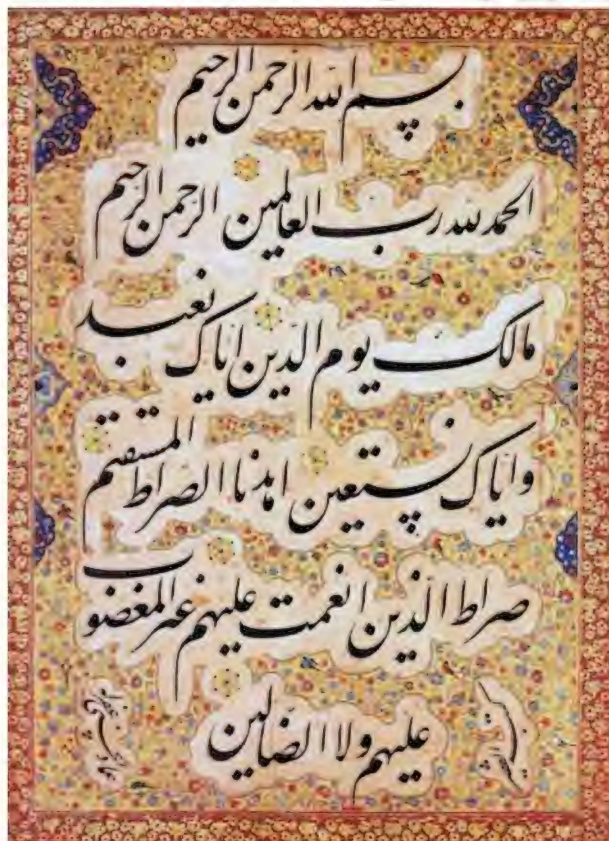 بسم الله الرحمن الرحیم
الحمد لله رب العالمین الرحمن الرحیم
مالک یوم الدّین ایّاک نعبد
وایّاک نستعین اهدنا الصّراط المستقیم
صراط الّذین انعمت علیهم غیر المغضوب
علیهم ولا الضّالین